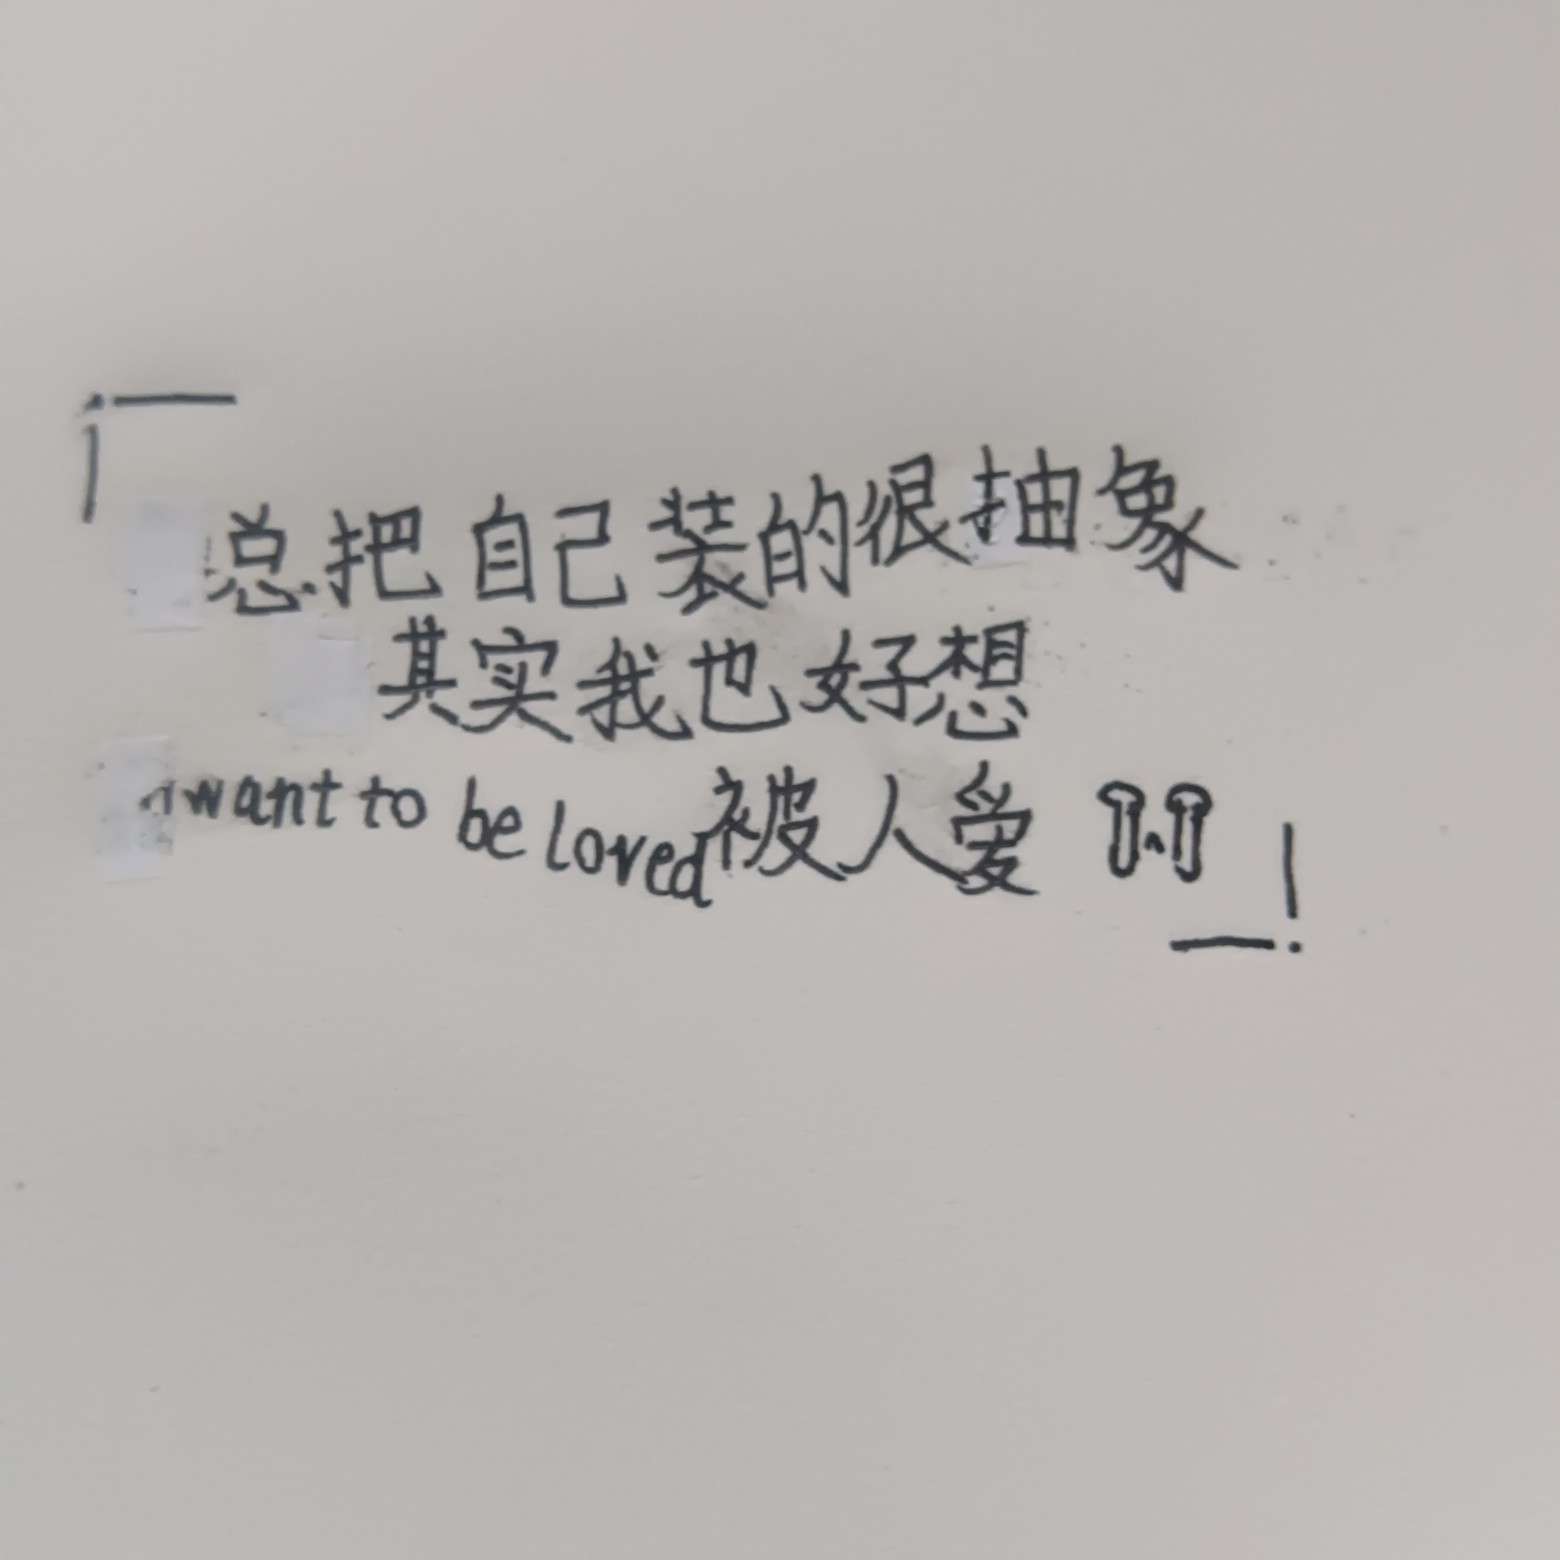 「总把自己装的很抽象
其实我也好想
want to be loved被人爱 」